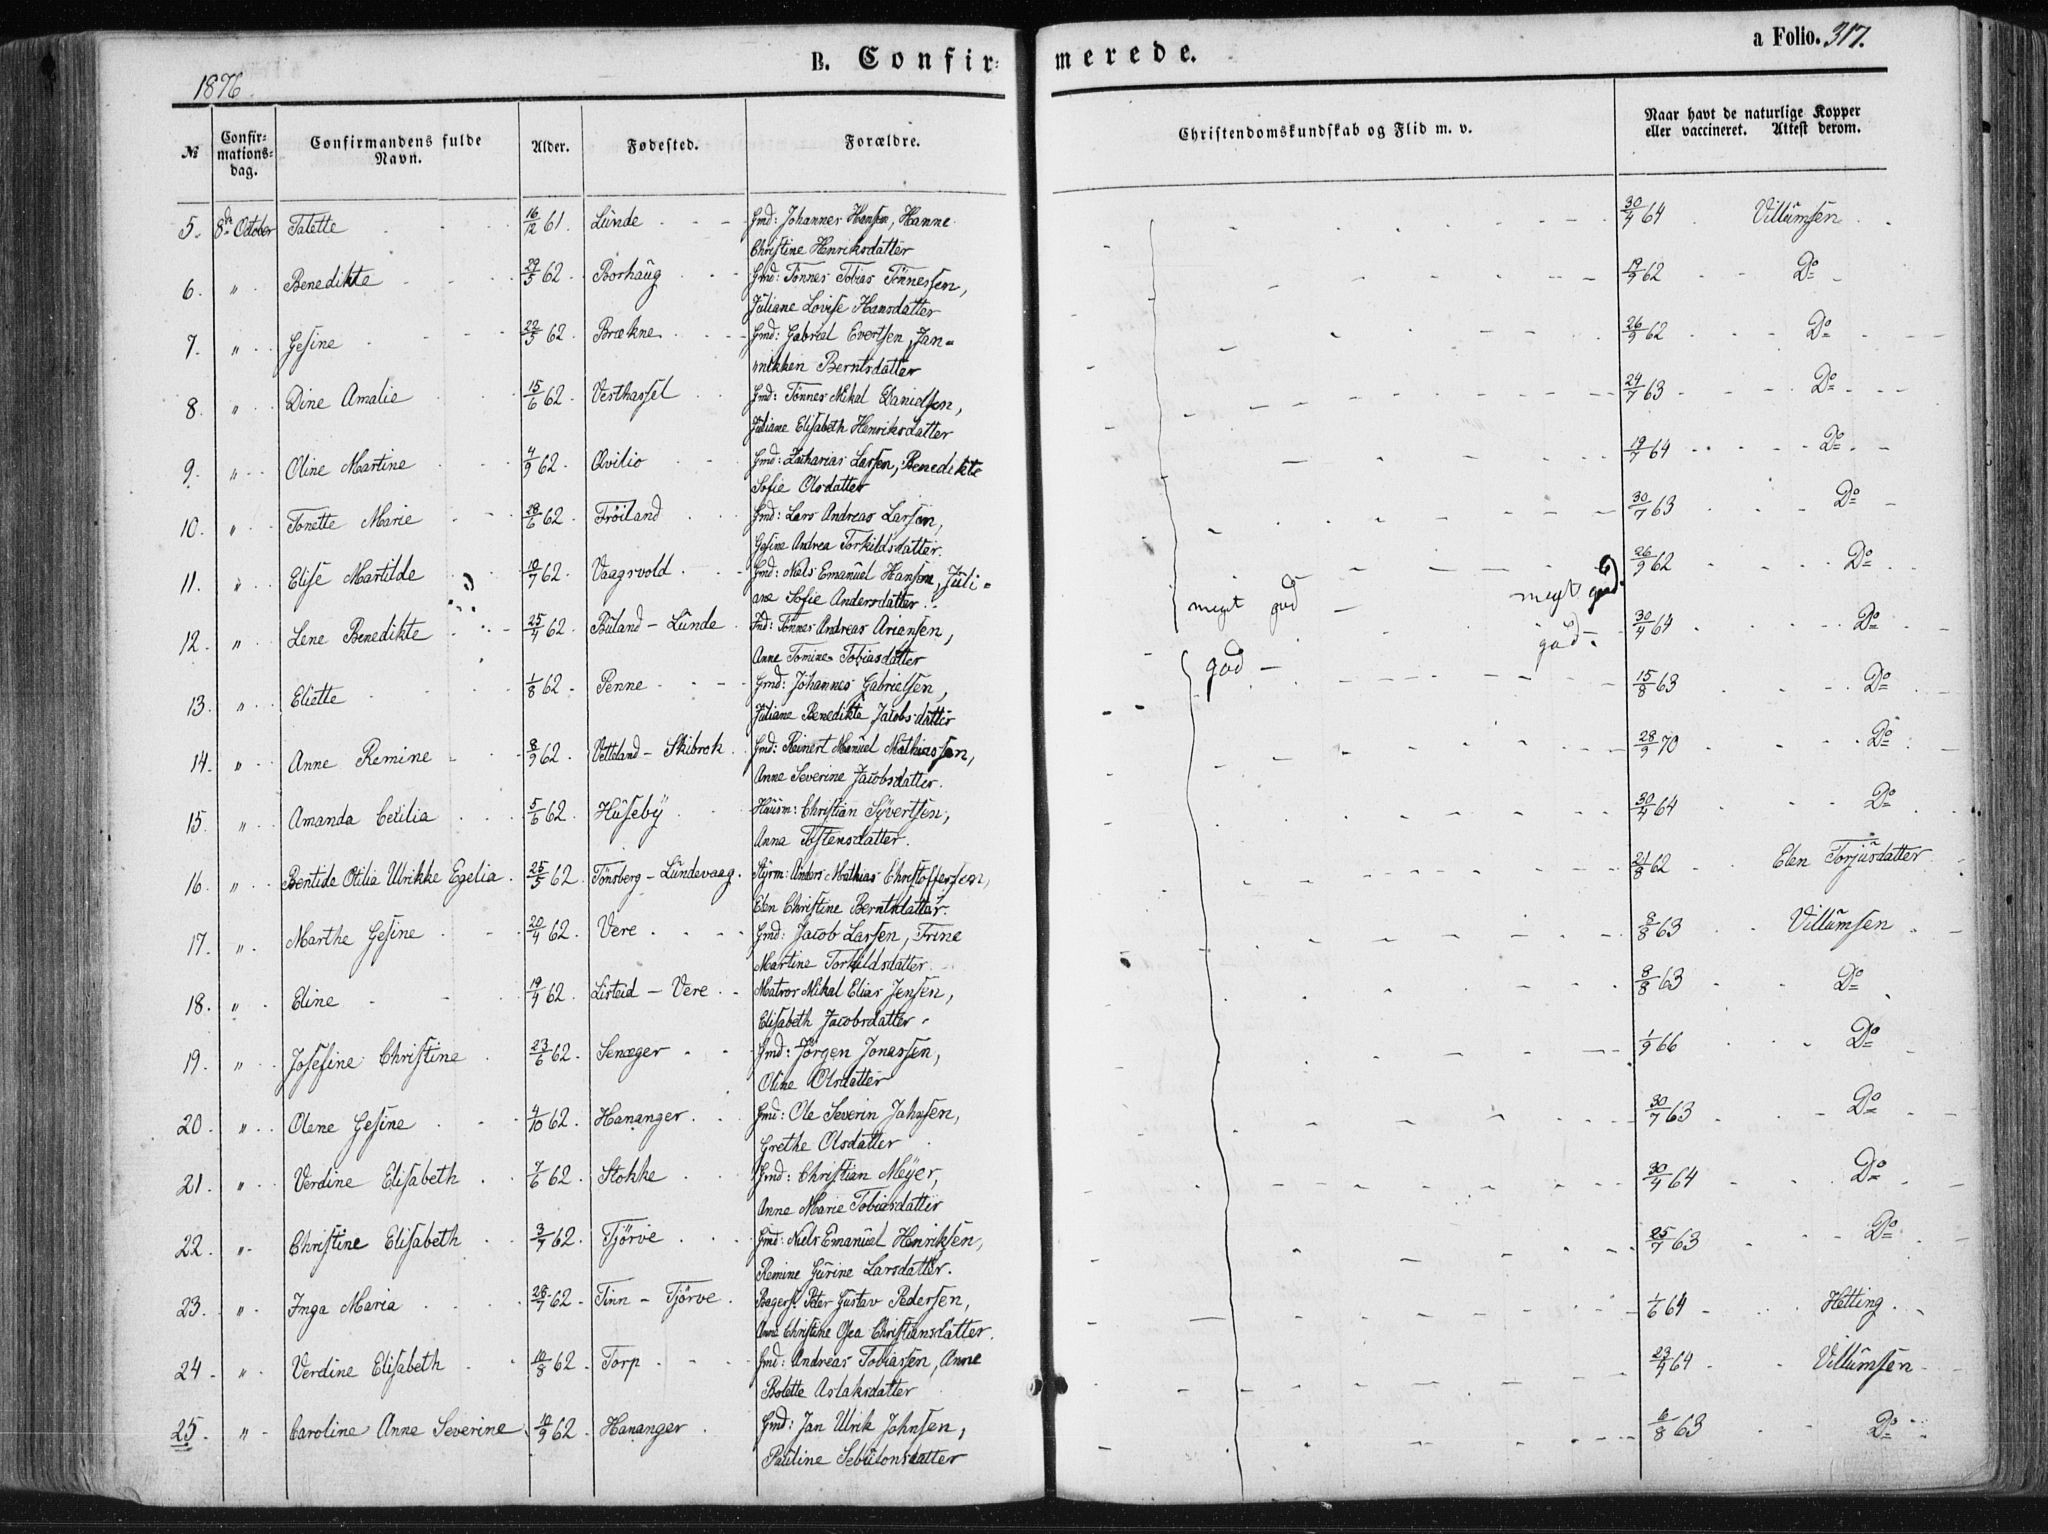 B. Confirmerede.
a Folio. 317.
1876.
№ Confirmations-dag. Confirmandens fulde Navn. Alder. Fødested. Forældre. Christendomskundskab og Flid m. v. Naar havt de naturlige Kopper eller vaccineret. Attest derom.
5. 8de October Talette 16/12 61. Lunde Gmd: Johannes Hansen, Hanne 30/4 64 Villumsen
Christine Henriksdatter
6. " Benedikte 29/5 62 Borhaug Gmd: Tønnes Tobias Tønnessen, 19/9 62 Do
Juliane Lovise Hansdatter
7. " Gesine 22/5 62 Brækne Gmd: Gabriel Evertsen, Jan- 26/9 62 Do
mikken Berntsdatter
8. " Dine Amalie 15/6 62 Vesthassel Gmd: Tönnes Mikal Danielsen, 24/7 63 Do
Juliane Elisabeth Henriksdatter
9. " Oline Martine 4/9 62. Qvilio Gmd: Zacharias Larsen, Benedikte 19/7 64 Do
Sofie Olsdatter
10. " Tonette Marie 28/6 62 Tröiland Gmd: Lars Andreas Larsen, 30/7 63 Do
Gesine Andrea Torkildsdatter.
11. " Elise Martilde 10/7 62. Vaagsvold Gmd: Niels Emanuel Hansen, Juli- meget god meget god. 26/9 62 Do
ane Sofie Andersdatter
12. " Lene Benedikte 25/4 62 Buland - Lunde Ind: Tönnes Andreas Ariensen, god 30/4 64 Do
Anne Tomine Tobiasdatter
13. " Eliette 1/8 62 Penne Gmd: Johannes Gabrielsen, god 15/8 63 Do
Juliane Benedikte Jacobsdatter
14. " Anne Remine 8/9 62. Vetteland - Skibrok Gmd: Reinert Manuel Mathiassen, 28/9 70 Do
Anne Severine Jacobsdatter.
15. " Amanda Cecilia 5/6 62 Huseby Huusm: Christian Syvertsen, 30/4 64 Do
Anna Tostensdatter.
16. " Bentide Otilia Ulrikke Egelia 25/5 62 Tönsberg - Lundevaag. Styrm: Anders Mathias Christoffersen, 21/8 62 Elen Torjusdatter
Elen Christine Berntsdatter.
17. " Marthe Gesine 20/4 62. Vere Gmd: Jacob Larsen, Trine 8/8 63 Villumsen
Martine Torkildsdatter.
18. " Eline 19/4 62 Listeid - Vere Matros Mikal Elias Jensen, 8/8 63 Do
Elisabeth Jacobsdatter
19. " Josefine Christine 23/6 62 Senæger Gmd: Jörgen Jonassen, 1/9 66 Do
Oline Olsdatter
20. " Olene Gesine 4/10 62. Hananger Gmd: Ole Severin Jahnsen, 30/7 63 Do
Grethe Olsdatter
21. " Verdine Elisabeth 7/6 62 Stokke Gmd: Christian Meyer, 30/4 64 Do
Anne Marie Tobiasdatter
22. " Christine Elisabeth 3/7 62. Tjörve Gmd: Niels Emanuel Henriksen, 25/7 63 Do
Remine Gurine Larsdatter.
23. " Inga Maria 28/7 62 Tinn - Tjörve. Bagers. Peter Gustav Pedersen, 1/6 64 Hetting
Anne Christine Osea Christiansdatter.
24 " Verdine Elisabeth 10/8 62 Torp Gmd: Andreas Tobiassen, Anne 23/9 64 Villumsen
Bolette Aslaksdatter
25. " Caroline Anne Severine 10/9 62 Hananger Gmd: Jan Ulrik Johnsen, 6/8 63 Do
Pauline Sebulonsdatter